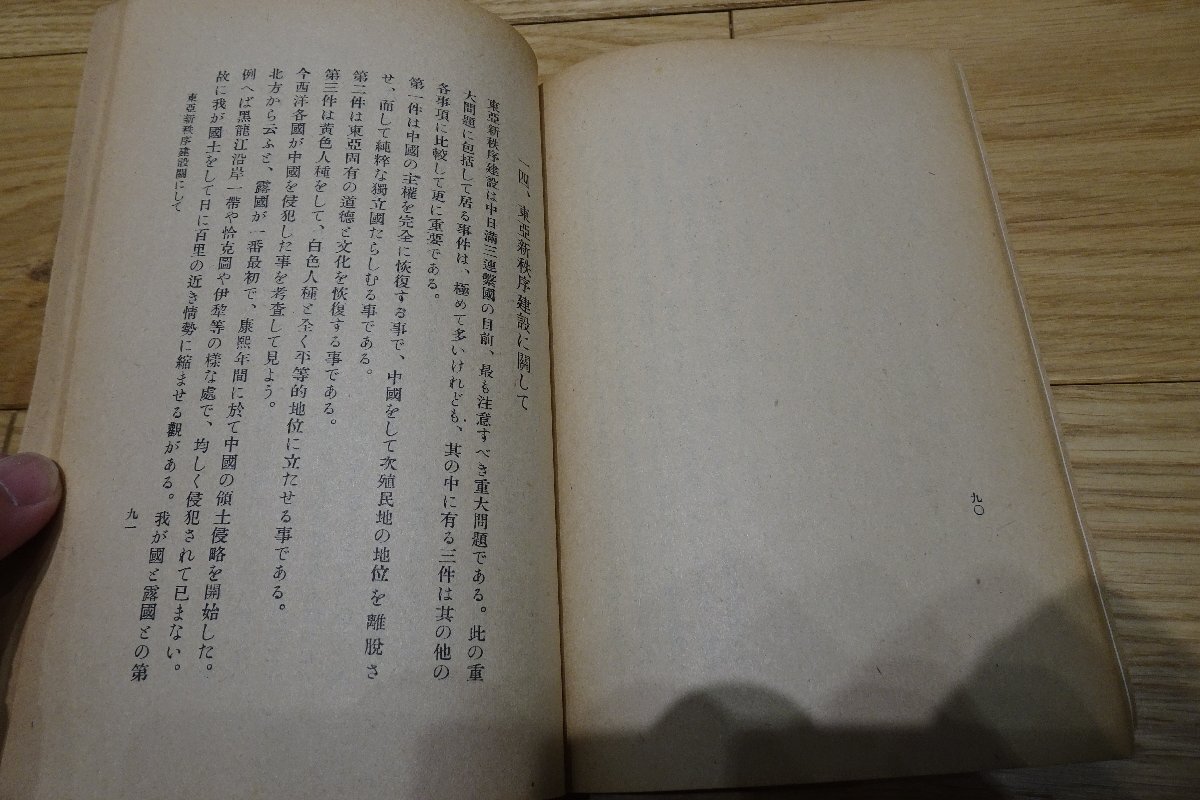 九〇
一四、東亞新秩序建設に關して
東亞新秩序建設は中日滿三連繫國の目前、最も注意すべき重大問題である。此の重
大問題に包括して居る事件は、極めて多いけれども、其の中に有る三件は其の他の
各事項に比較して更に重要である。
第一件は中國の主權を完全に恢復する事で、中國をして次殖民地の地位を離脫さ
せ、而して純粹な獨立國たらしむる事である。
第二件は東亞固有の道德と文化を恢復する事である。
第三件は黄色人種をして、白色人種と全く平等的地位に立たせる事である。
今西洋各國が中國を侵犯した事を考査して見よう。
北方から云ふと、露國が一番最初で、康熙年間に於て中國の領土侵略を開始した。
例へば黑龍江沿岸一帶や恰克圖や伊犂等の樣な處で、均しく侵犯されて已まない。
故に我が國土をして日に百里の近き情勢に縮ませる觀がある。我が國と露國との第
東亞新秩序建設關にして
九一